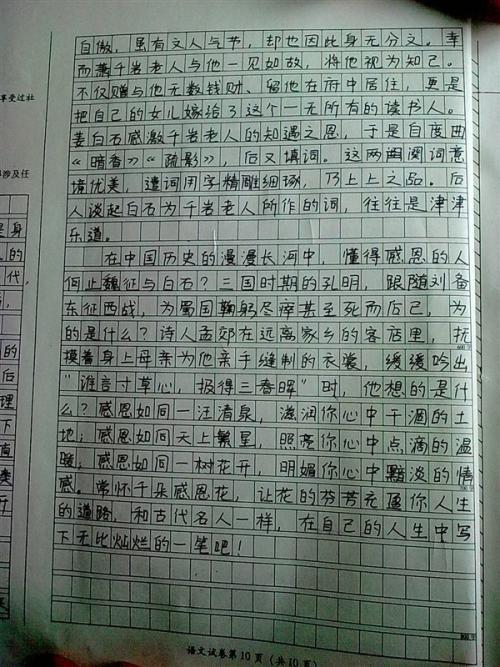 自傲，虽有文人气节，却也因此身无分文。幸
而萧千岩老人与他一见如故，将他视为知己。
不仅赠与他无数钱财、留他在府中居住，更是
把自己的女儿嫁给了这个一无所有的读书人。
姜白石感激千岩老人的知遇之恩，于是自度曲
《暗香》《疏影》，后又填词。这两阕词意
境优美，遣词用字精雕细琢，乃上上之品。后
人谈起白石为千岩老人所作的词，往往是津津
乐道。
在中国历史的漫漫长河中，懂得感恩的人
何止魏征与白石？三国时期的孔明，跟随刘备
东征西战，为蜀国鞠躬尽瘁甚至死而后已，为
的是什么？诗人孟郊在远离家乡的客店里，抚
摸着身上母亲为他亲手缝制的衣裳，缓缓吟出
“谁言寸草心，报得三春晖”时，他想的是什
么？感恩如同一汪清泉，滋润你心中干涸的土
地；感恩如同天上繁星，照亮你心中点滴的温
暖；感恩如同一树花开，明媚你心中黯淡的情
感。常怀千朵感恩花，让花的芬芳充盈你人生
的道路，和古代名人一样，在自己的人生中写
下无比灿烂的一笔吧！
语文试卷第10页（共10页）
享受过社
涉及任
是身
人的
代，
的
后
理
下
直
卖
开